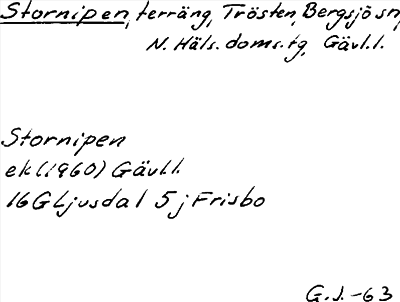 Stornipen, terräng, Trösten, Bergsjö sn,
N. Häls. doms.tg, Gävl.l.
Stornipen
ek (1960) Gävl.l.
16G Ljusdal 5j Frisbo
G.J.-63